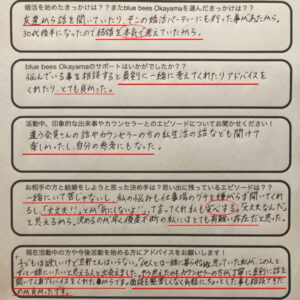 婚活を始めたきっかけは？？またblue bees Okayamaを選んだきっかけは？？
友達から話を聞いていたり、そこの婚活パーティーにも行った事があったから。
30代後半になったので結婚を本気で考えていたから。
blue bees Okayamaのサポートはいかがでしたか？？
悩んでいる事を相談すると真剣に一緒に考えてくれたりアドバイスを
くれたり、とても良かった。
活動中、印象的な出来事やカウンセラーとのエピソードについてお聞かせください！
違う会員さんの話やカウンセラーの方の私生活の話なども聞けて
楽しかったし、自分の参考にもなった。
お相手の方と結婚をしようと思った決め手は？？思い出に残っているエピソードは？？
一緒にいて苦じゃないし、私の悩みも仕事場のグチを嫌がらず聞いてくれ
るし、「大丈夫!!」とか「気にしないよ!」って言ってくれ
と思えるから。決めるのが早く優柔不断の私にはとても有難い存在だと思った。
現在活動中の方や今後活動を始める方にアドバイスをお願いします！
「子どもは欲しいけど旦那さんはいらない」「他人と一緒に暮らす
ずっと一緒にいたいと思える人と出会えました。そう思えたのもカウンセラーの方が丁寧に真剣に話を
聞いて下さりアドバイスをくれた事からです。面談も緊張しなく気軽に
お世話になりました。